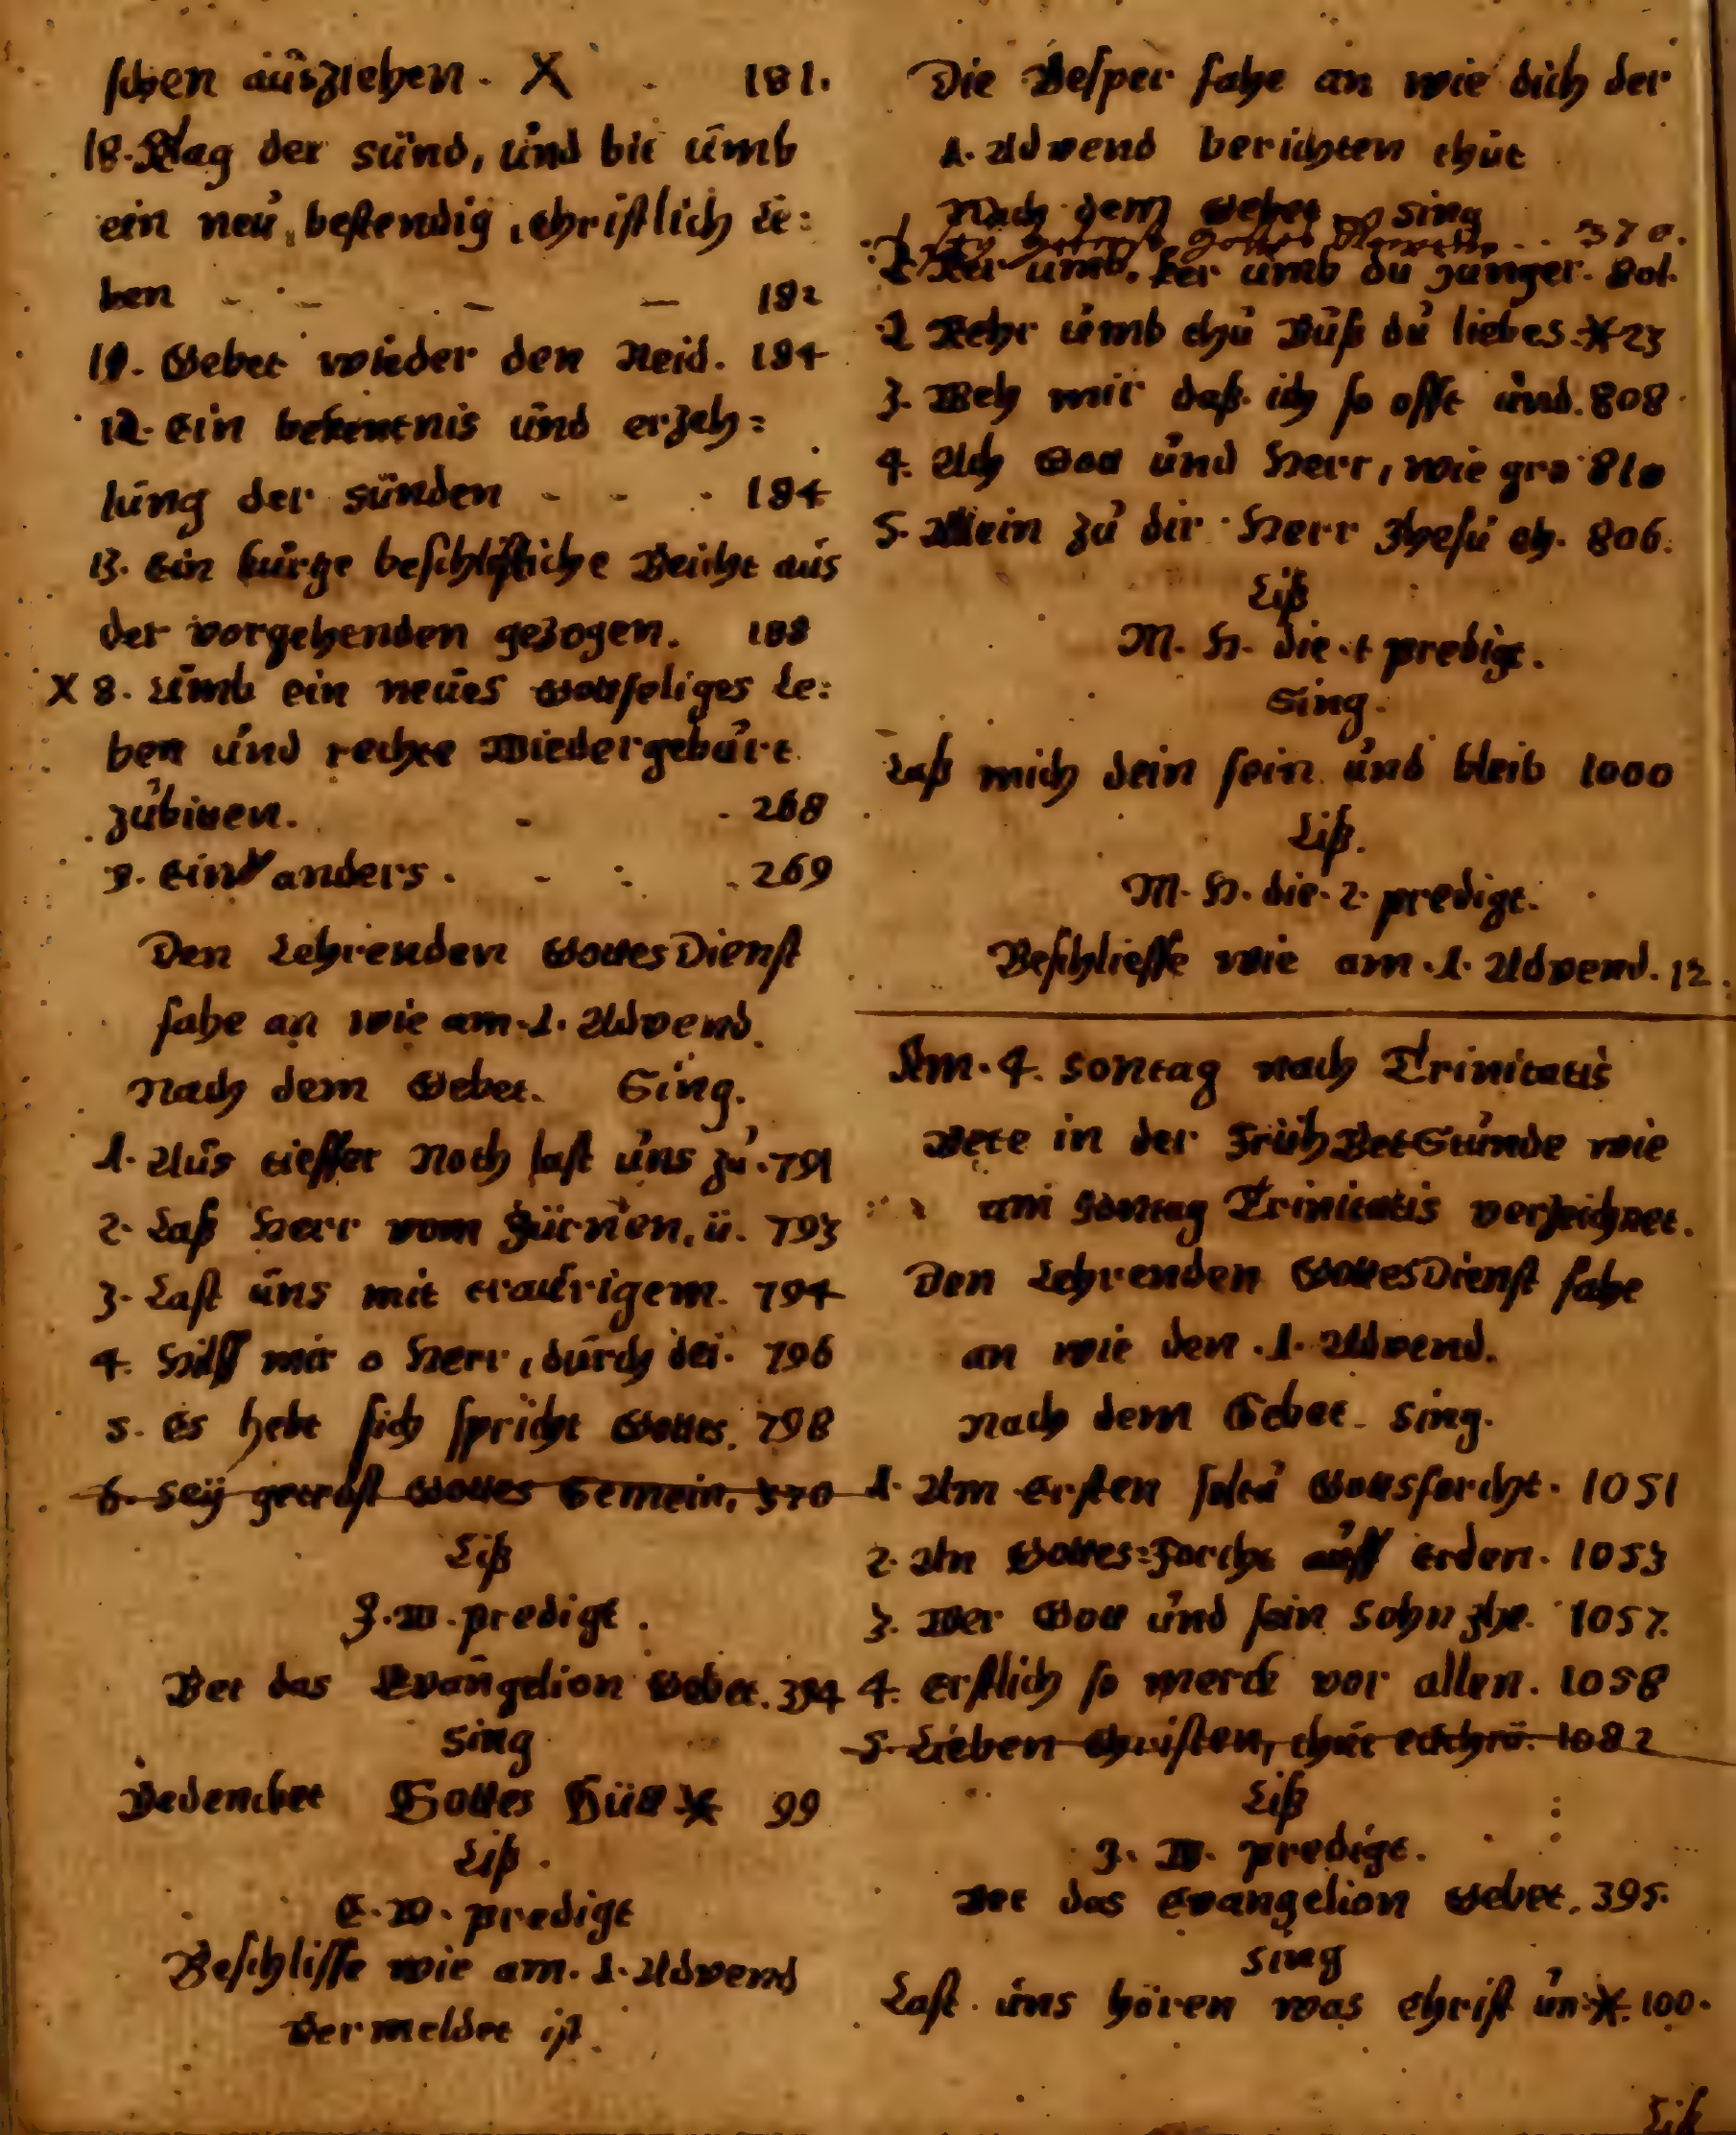 schen ausziehen. X - 181.
18. Klag der sünd, und bit umb
ein neu, bestendig, christlich Le:
ben - - - - 182
19. Gebet wieder den Neid. 184
12. Ein bekentnis und erzeh=
lung der sünden - - - 184
13. Ein kurtze beschlisliche Beicht aus
der vorgehenden gezogen. 188
X 8. Umb ein neües Gottseliges Le:
ben und rechte Wiedergeburt
zubitten. - - 268
9. Ein anders. - : - 269
Den Lehrenden GottesDienst
fahe an wie am .1. Advend.
Nach dem Gebet. Sing.
1. Aus tieffer Noth last uns zu. 791
2. Laß Herr vom Zürnen, ü. 793
3. Last uns mit traurigem. 794
4. Hilff mir o Herr, durch dei. 796
5. Es hebt sich spricht Gottes. 798
6. Sey getröst Gottes Gemein. 370
Liß
J. W. predigt.
Bet das Evangelion Gebet. 394
Sing
Bedencket Gottes Güt * 99
Liß.
C. W. predigt
Beschlisse wie am .1. Advend
Vermeldet ist.
Die Vesper fahe an wie dich der
1. Advend berichten thut
Nach dem Gebet Sing
1 Sey getrost Gottes Gemein . . 370.
Ker umb, ker umb du Junger. 801.
2 Kehr umb thu Buß du liebes * 23
3. Weh mir daß ich so offt und. 808
4. Ach Gott und Herr, wie gro 810
5. Allein zu dir Herr Jhesu ch. 806.
Liß
M. H. die .1 predigt.
Sing.
Laß mich dein sein und bleib 1000
Liß.
M. H. die. 2. predigt.
Beschliesse wie am .1. Advend. 12.
Am. 4. Sontag nach Trinitatis
Bete in der FrühBetStunde wie
am Sontag Trinitatis verzeichnet.
Den Lehrenden GottesDienst fahe
an wie den .1. Advend.
Nach dem Gebet. Sing.
1. Am Ersten soltu Gottsforcht. 1051
2. An Gottes=Forcht auff Erden. 1053
3. Wer Gott und sein Sohn Jhe. 1057.
4. Erstlich so merck vor allen. 1058
5. Lieben Christen, thut 1082
Liß
J. W. predigt.
Bet das Evangelion Gebet. 395.
Sing
Last uns hören was Christ un * 100.
Liß